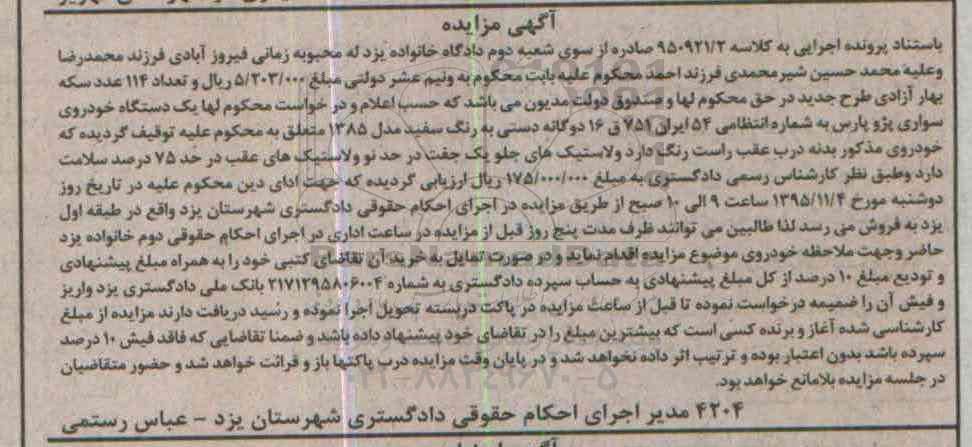 آگهی مزایده
باستناد پرونده اجرایی به کلاسه ۹۵۰۹۲۱/۲ صادره از سوی شعبه دوم دادگاه خانواده یزد له محبوبه زمانی فیروز آبادی فرزند محمدرضا
وعلیه محمد حسین شیر محمدی فرزند احمد محکوم علیه بابت محکوم به ونیم عشر دولتی مبلغ ۵/۲۰۳/۰۰۰ ریال و تعداد ۱۱۴ عدد سکه
بهار آزادی طرح جدید در حق محکوم لها و صندوق دولت مدیون می باشد که حسب اعلام و در خواست محکوم لها یک دستگاه خودروی
سواری پژو پارس به شماره انتظامی ۵۴ ایران ۷۵۱ ق ۱۶ دوگانه دستی به رنگ سفید مدل ۱۳۸۵ متعلق به محکوم علیه توقیف گردیده که
خودروی مذکور بدنه درب عقب راست رنگ دارد ولاستیک های جلو یک جفت در حد نو ولاستیک های عقب در حد ۷۵ درصد سلامت
دارد وطبق نظر کارشناس رسمی دادگستری به مبلغ ۱۷۵/۰۰۰/۰۰۰ ریال ارزیابی گردیده که جهت ادای دین محکوم علیه در تاریخ روز
دوشنبه مورخ ۱۳۹۵/۱۱/۴ ساعت ۹ الی ۱۰ صبح از طریق مزایده در اجرای احکام حقوقی دادگستری شهرستان یزد واقع در طبقه اول
یزد به فروش می رسد لذا طالبین می توانند ظرف مدت پنج روز قبل از مزایده در ساعت اداری در اجرای احکام حقوقی دوم خانواده یزد
حاضر وجهت ملاحظه خودروی موضوع مزایده اقدام نماید و در صورت تمایل به خرید آن تقاضای کتبی خود را به همراه مبلغ پیشنهادی
و تودیع مبلغ ۱۰ درصد از کل مبلغ پیشنهادی به حساب سپرده دادگستری به شماره ۲۱۷۱۲۹۵۸۰۶۰۰۴ بانک ملی دادگستری یزد واریز
و فیش آن را ضمیمه درخواست نموده تا قبل از ساعت مزایده در پاکت دربسته تحویل اجرا نموده و رسید دریافت دارند مزایده از مبلغ
کارشناسی شده آغاز و برنده کسی است که بیشترین مبلغ را در تقاضای خود پیشنهاد داده باشد و ضمنا تقاضایی که فاقد فیش ۱۰ درصد
سپرده باشد بدون اعتبار بوده و ترتیب اثر داده نخواهد شد و در پایان وقت مزایده درب پاکتها باز و قرائت خواهد شد و حضور متقاضیان
در جلسه مزایده بلامانع خواهد بود.
۰۲۱-۸۸۳۴۹۶۷۰-۵
۴۲۰۴ مدیر اجرای احکام حقوقی دادگستری شهرستان یزد - عباس رستمی